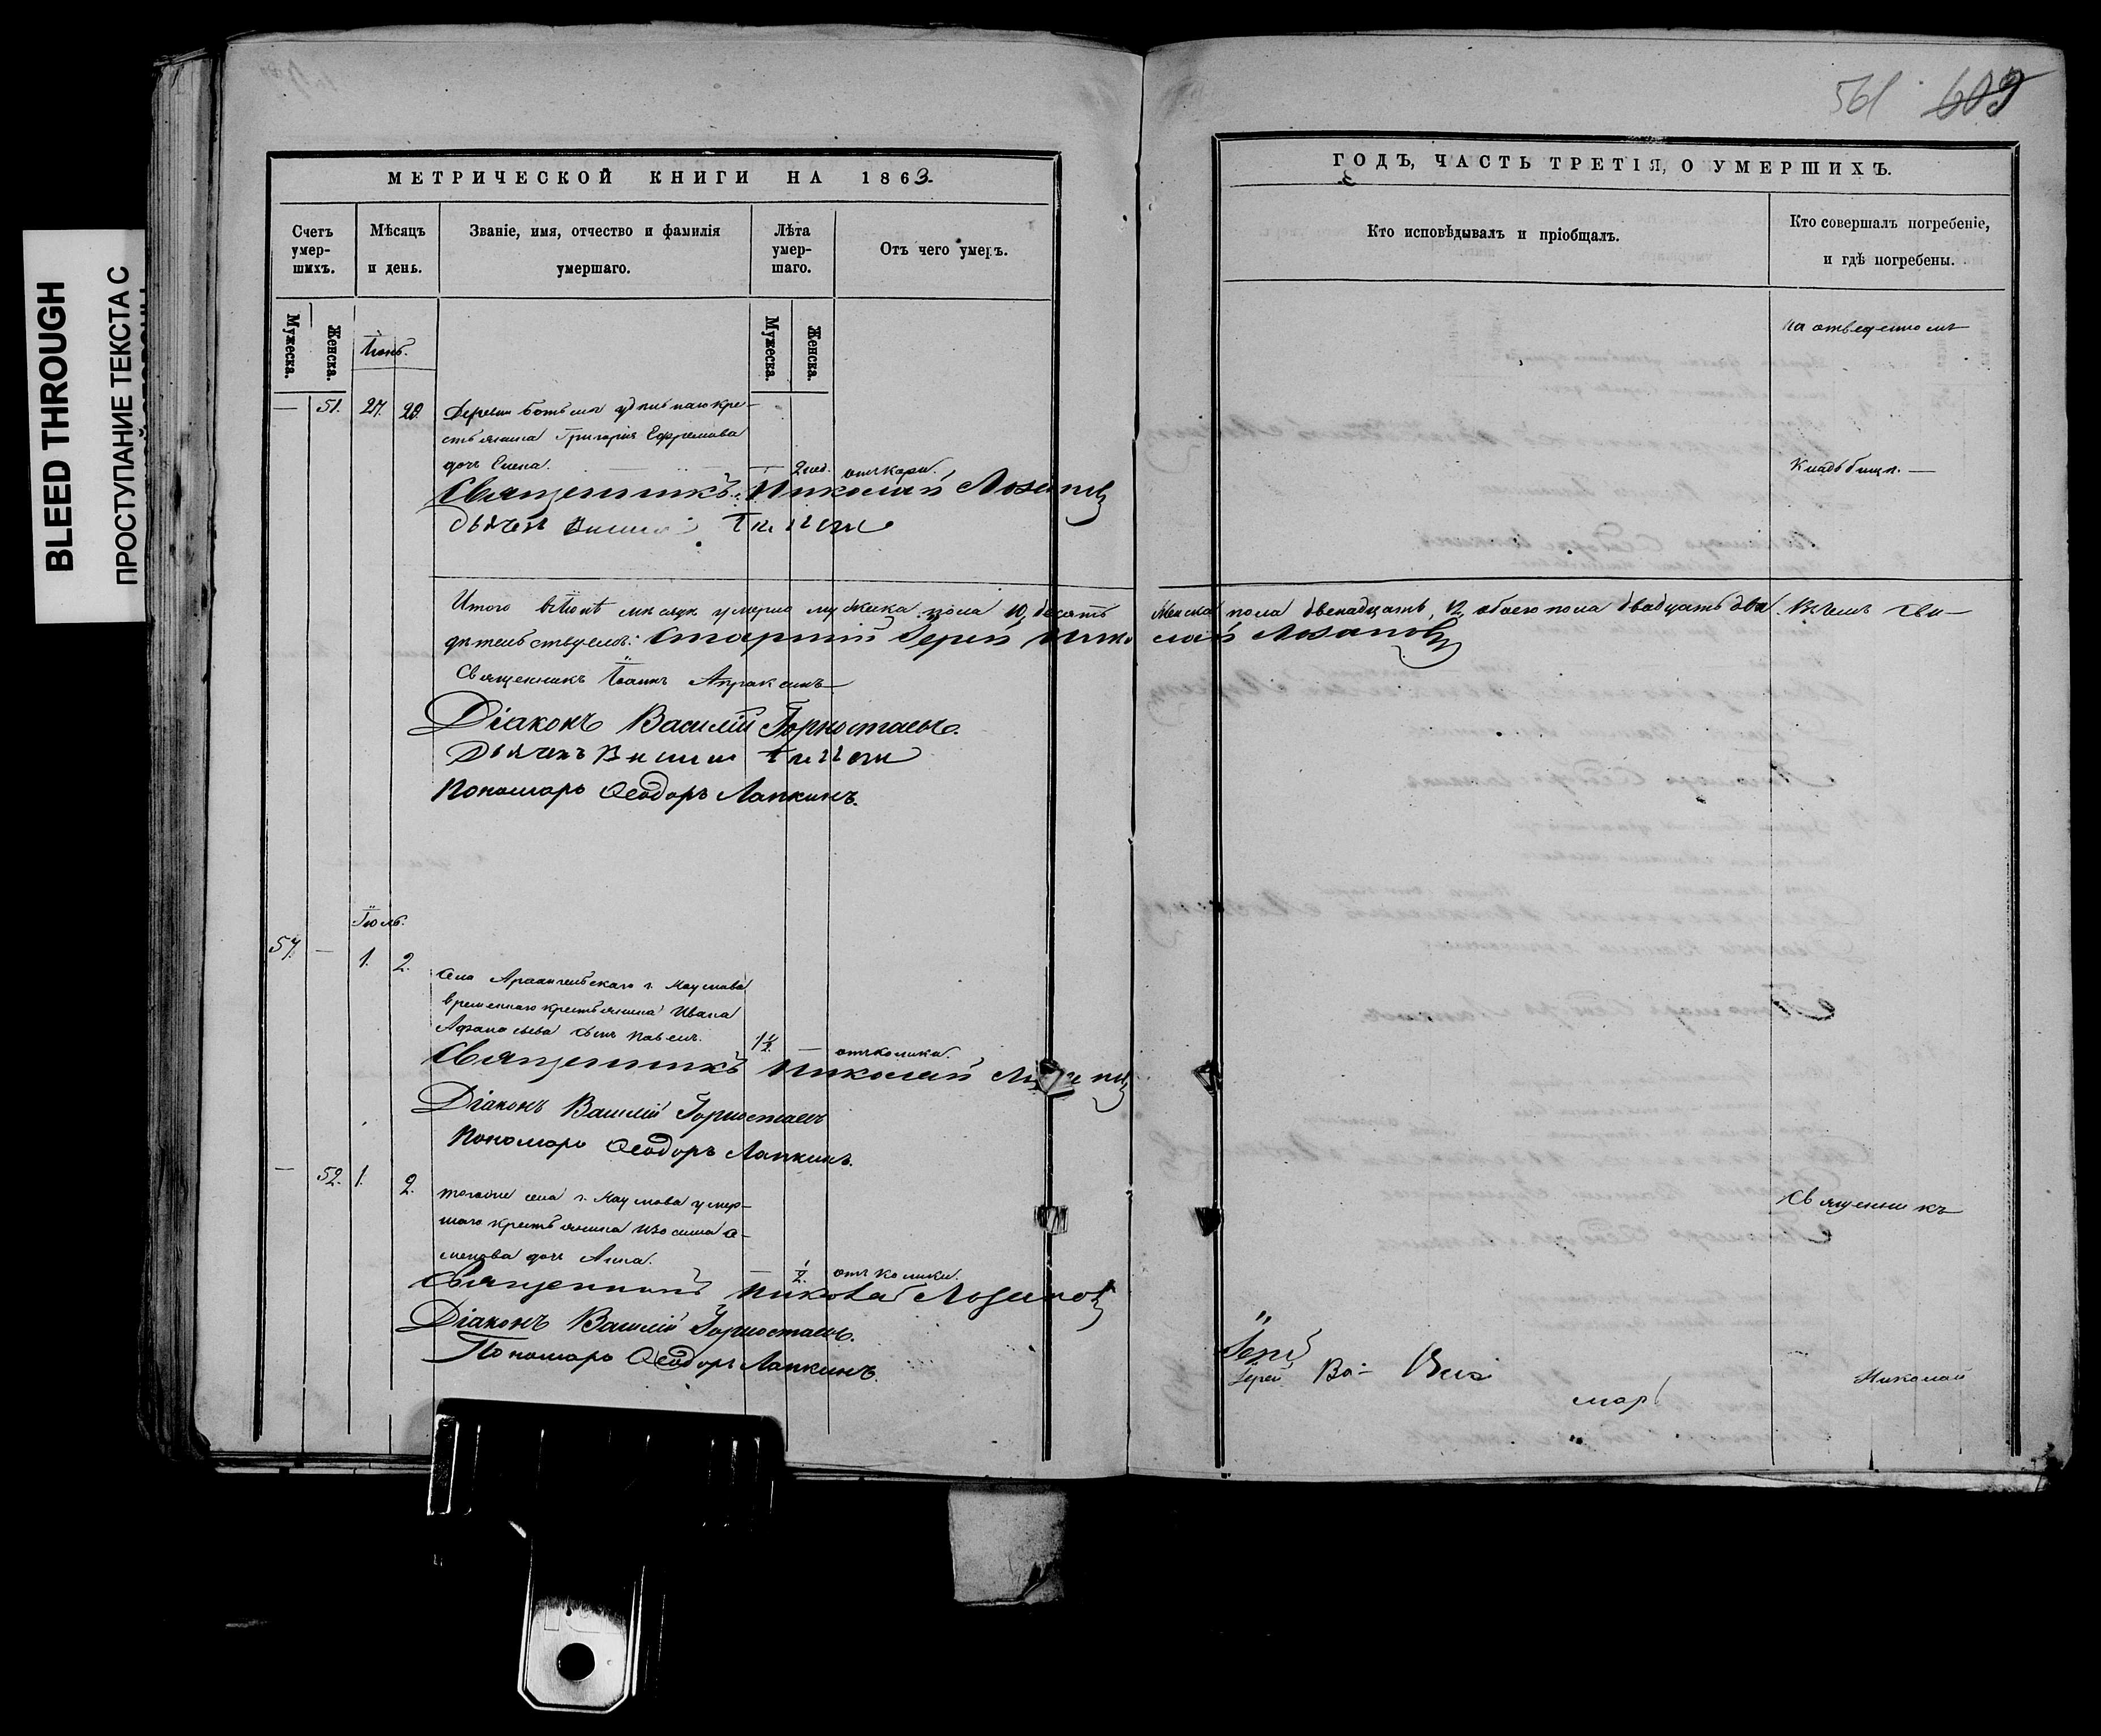 BLEED THROUGH
ПРОСТУПАНИЕ ТЕКСТА С
561 609
МЕТРИЧЕСКОЙ КНИГИ НА 1863.
ГОДЪ, ЧАСТЬ ТРЕТІЯ, О УМЕРШИХЪ.
Счетъ умер-шихъ.
Мѣсяцъ и день.
Званіе, имя, отчество и фамилія умершаго.
Лѣта умер-шаго.
Отъ чего умеръ.
Кто исповѣдывалъ и пріобщалъ.
Кто совершалъ погребеніе, и гдѣ погребены.
Мужеска.
Женска.
Мужеска.
Женска.
Іюнь.
на отведенномъ
— 51. 27. 28. Деревни удѣльнаго кре-
стьянина Григорія Ефремова
дочь Елена. — 2 нед. отъ кори.
Кладбищѣ. —
Священникъ Николай Лозановъ
Дьячекъ
Итого въ Іюнѣ мѣсяцѣ умерло мужска пола 10, десять женска пола двенадцать, 12, обоего пола двадцать два. Въ чемъ сви-
дѣтельствуемъ: Старшій Іерей Николай Лозановъ
Священникъ Іоаннъ Апраксинъ
Діаконъ Василій Горностаевъ.
Дьячекъ
Пономарь Ѳеодоръ Лапкинъ.
Іюль.
57. — 1. 2.
Села Архангельскаго г. Наумова
временнаго крестьянина Ивана
Афанасьева сынъ Павелъ. 1½ — отъ колики.
Священникъ Николай Лозановъ
Діаконъ Василій Горностаевъ
Пономарь Ѳеодоръ Лапкинъ.
— 52. 1. 2. тогоже села г. Наумова умер-
шаго крестьянина
дочь Анна. — ½ отъ колики.
Священникъ
Священникъ Николай Лозановъ
Діаконъ Василій Горностаевъ.
Пономарь Ѳеодоръ Лапкинъ.
Іерей
Николай